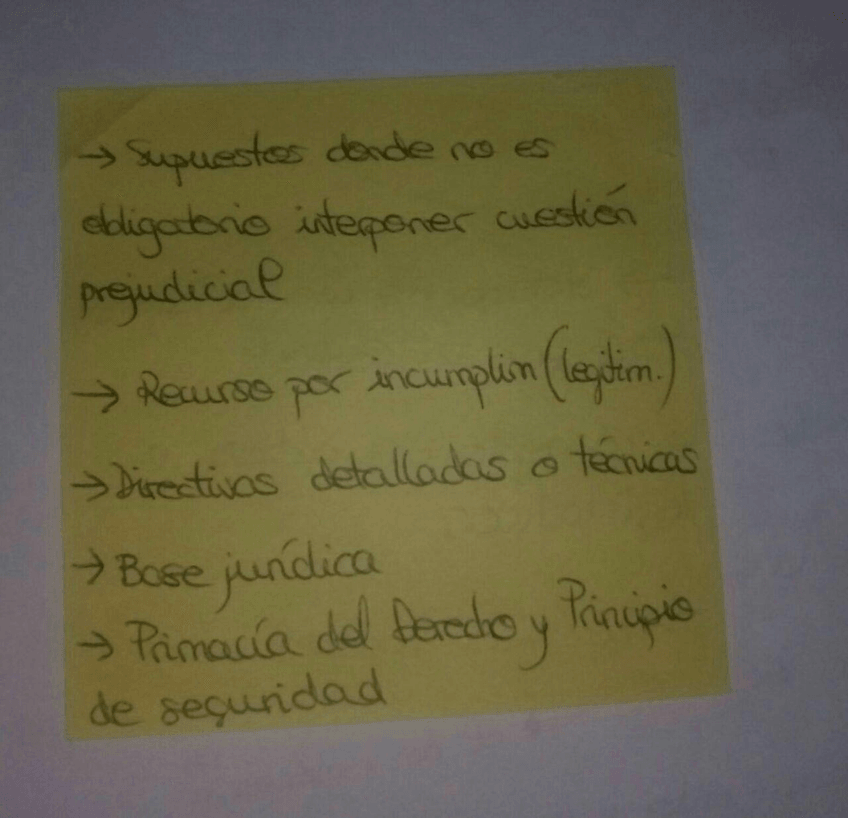 → Supuestos donde no es
obligatorio interponer cuestión
prejudicial
→ Recurso por incumplim (legitim.)
→ Directivas detalladas o técnicas
→ Base jurídica
→ Primacía del Derecho y Principio
de seguridad